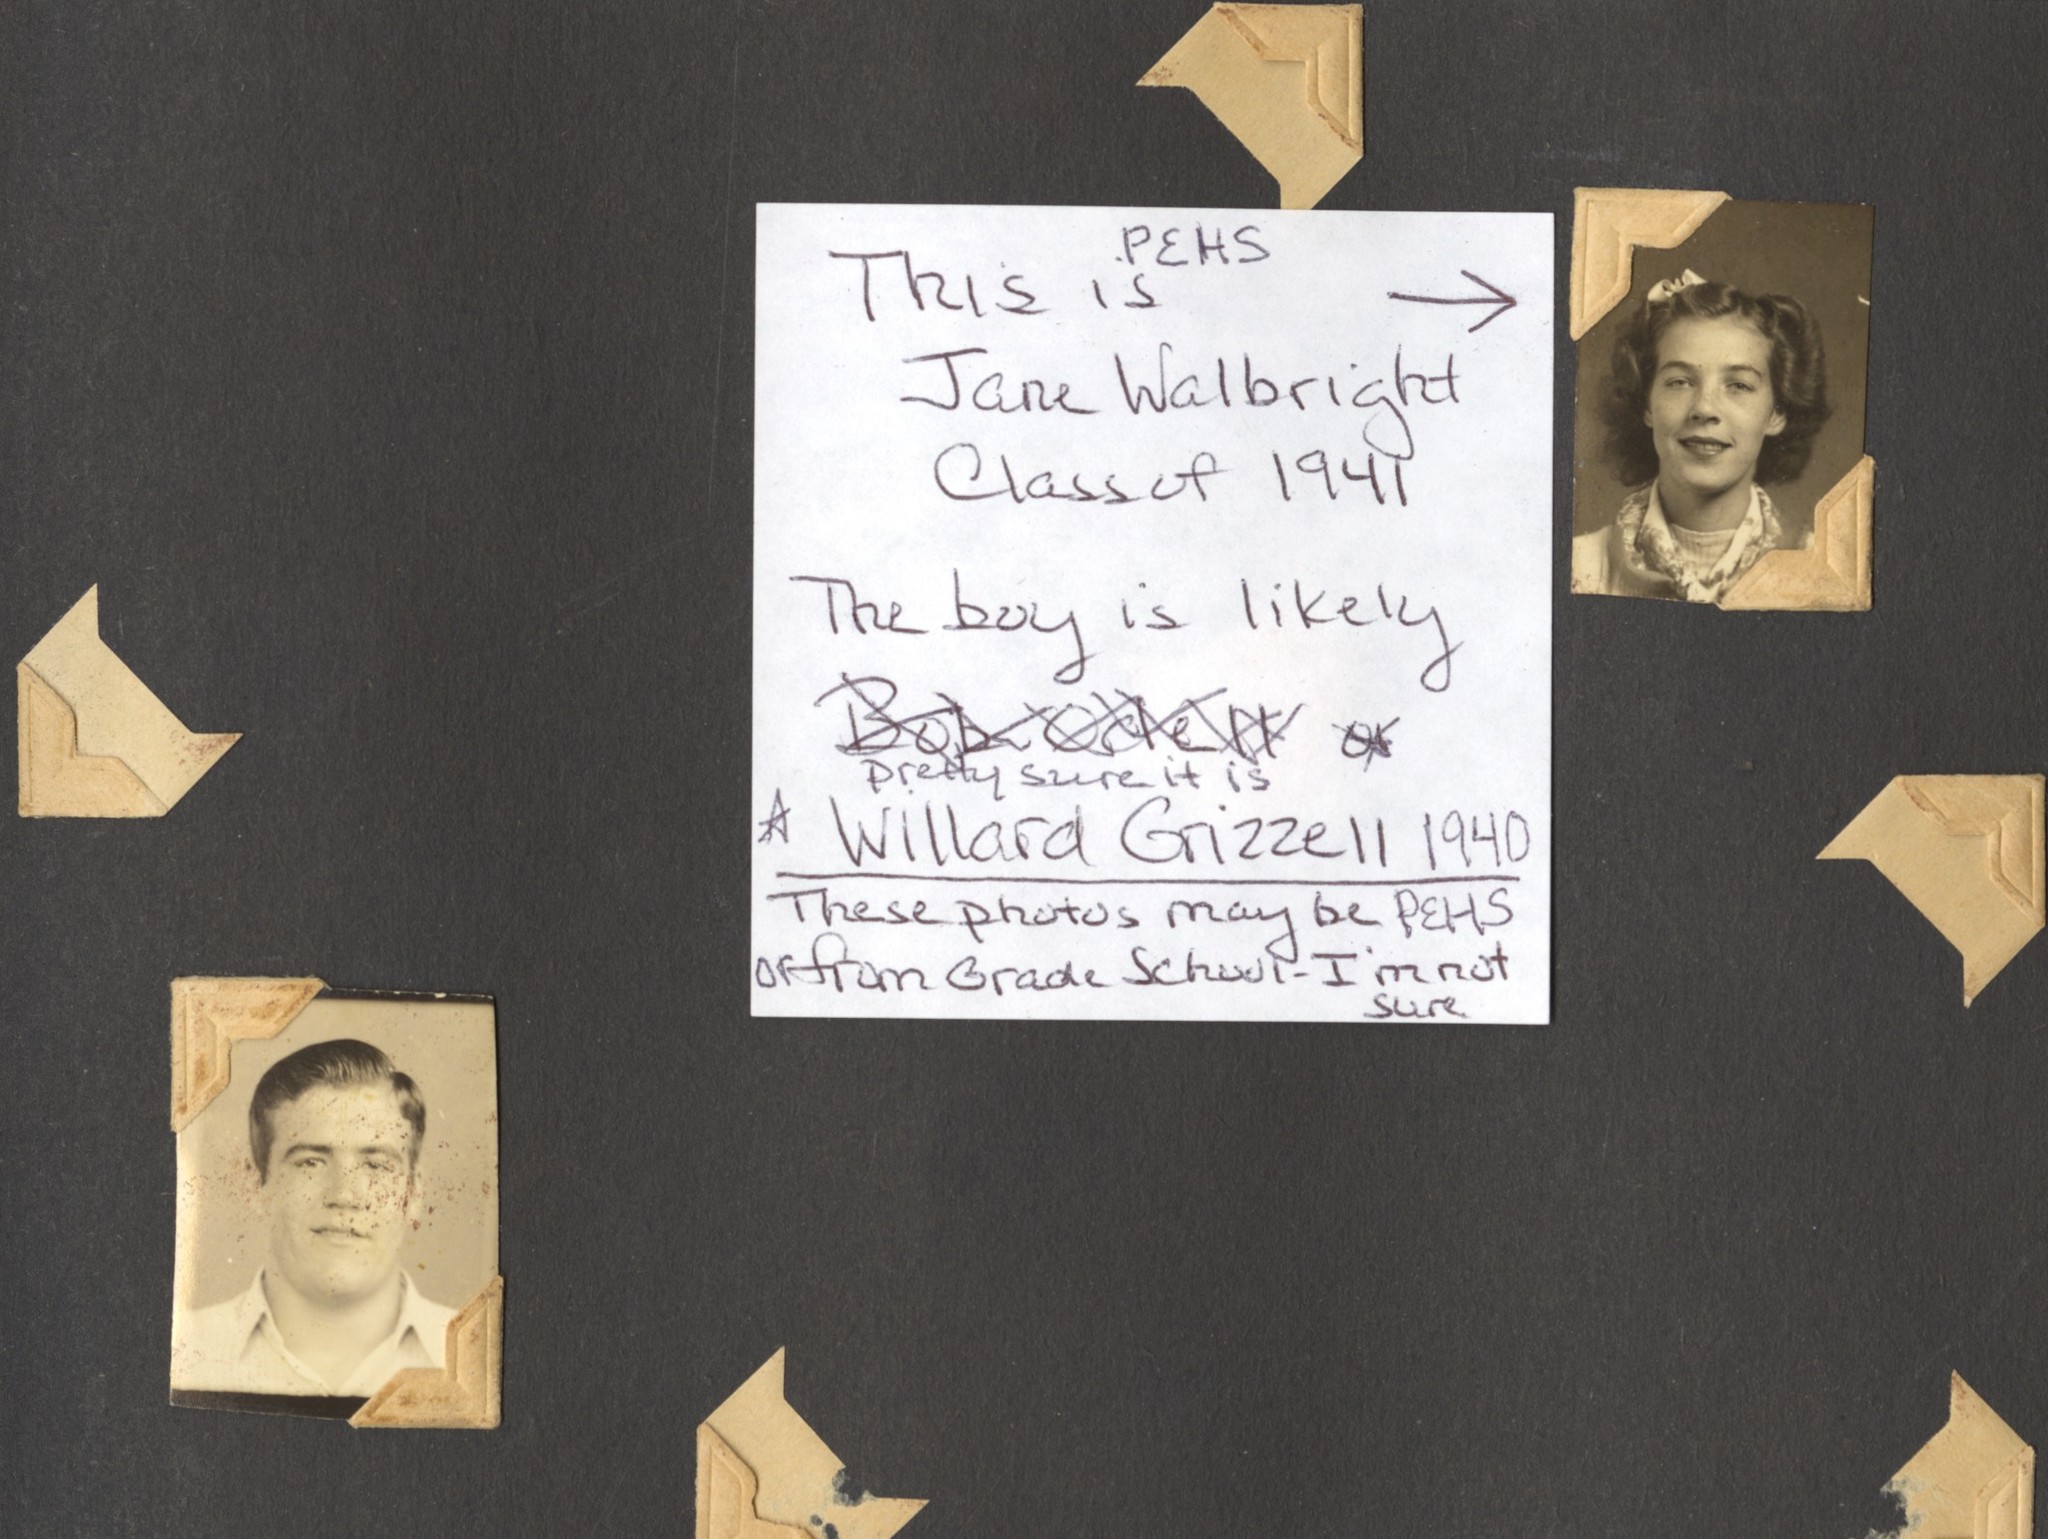 PEHS
This is →
Jane Walbright
Class of 1941
The boy is likely
Bob Odett or
pretty sure it is
☆ Willard Grizzell 1940
These photos may be PEHS
or from Grade School - I'm not
sure